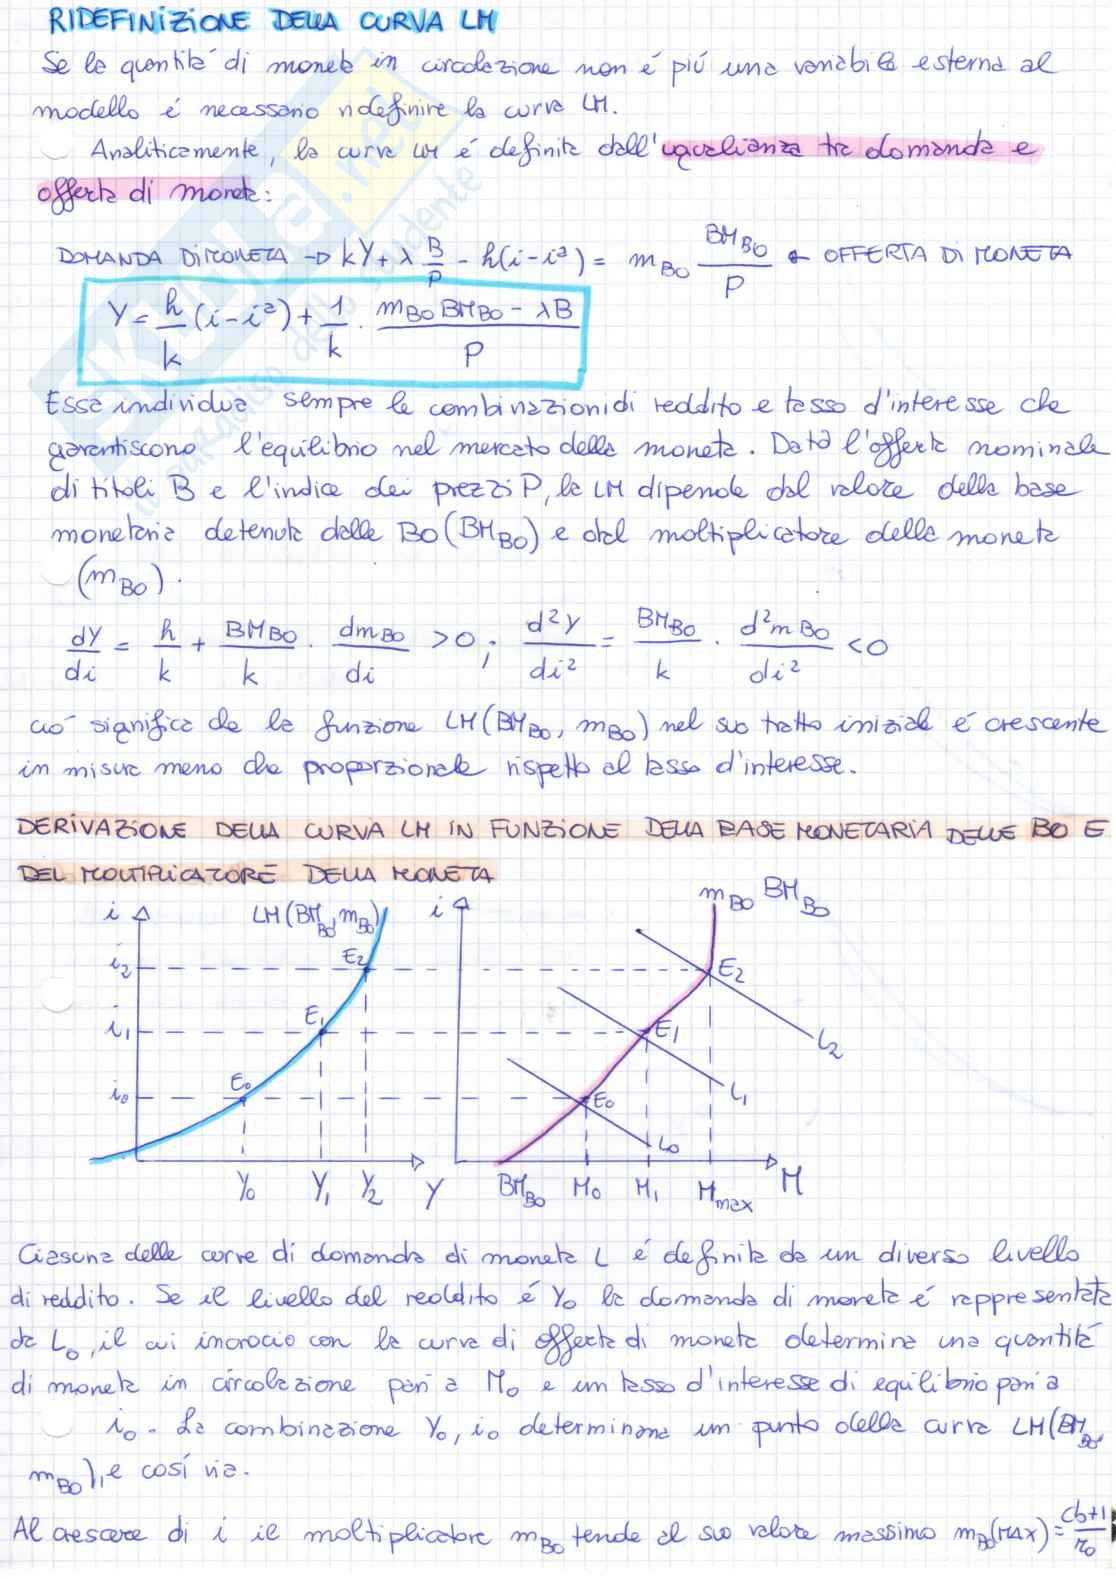 RIDEFINIZIONE DELLA CURVA LM
Se la quantitá di moneta in circolazione non é piú una variabile esterna al
modello é necessario ridefinire la curva LM.
Analiticamente, la curva LM é definita dall'uguaglianza tra domanda e
offerta di moneta:
DOMANDA DI MONETA → kY + λ B/P - h(i-iᵃ) = m_BO BM_BO/P ← OFFERTA DI MONETA
Y = h/k (i-iᵃ) + 1/k · (m_BO BM_BO - λB)/P
Essa individua sempre le combinazioni di reddito e tasso d'interesse che
garantiscono l'equilibrio nel mercato della moneta. Data l'offerta nominale
di titoli B e l'indice dei prezzi P, la LM dipende dal valore della base
monetaria detenuta dalle BO (BM_BO) e dal moltiplicatore della moneta
(m_BO).
dY/di = h/k + BM_BO/k · dm_BO/di >0 ; d²Y/di² = BM_BO/k · d²m_BO/di² <0
ció significa che la funzione LM(BM_BO, m_BO) nel suo tratto iniziale é crescente
in misura meno che proporzionale rispetto al tasso d'interesse.
DERIVAZIONE DELLA CURVA LM IN FUNZIONE DELLA BASE MONETARIA DELLE BO E
DEL MOLTIPLICATORE DELLA MONETA
i LM(BM_BO, m_BO) i m_BO BM_BO
i₂ E₂ E₂
i₁ E₁ E₁ L₂
i₀ E₀ E₀ L₁
L₀
Y₀ Y₁ Y₂ Y BM_BO M₀ M₁ M_max M
Ciascuna delle curve di domanda di moneta L é definita da un diverso livello
di reddito. Se il livello del reddito é Y₀ la domanda di moneta é rappresentata
da L₀, il cui incrocio con la curva di offerta di moneta determina una quantitá
di moneta in circolazione pari a M₀ e un tasso d'interesse di equilibrio pari a
i₀. La combinazione Y₀, i₀ determinano un punto della curva LM(BM_BO,
m_BO), e cosí via.
Al crescere di i il moltiplicatore m_BO tende al suo valore massimo m_BO(MAX) = cb+1/r₀